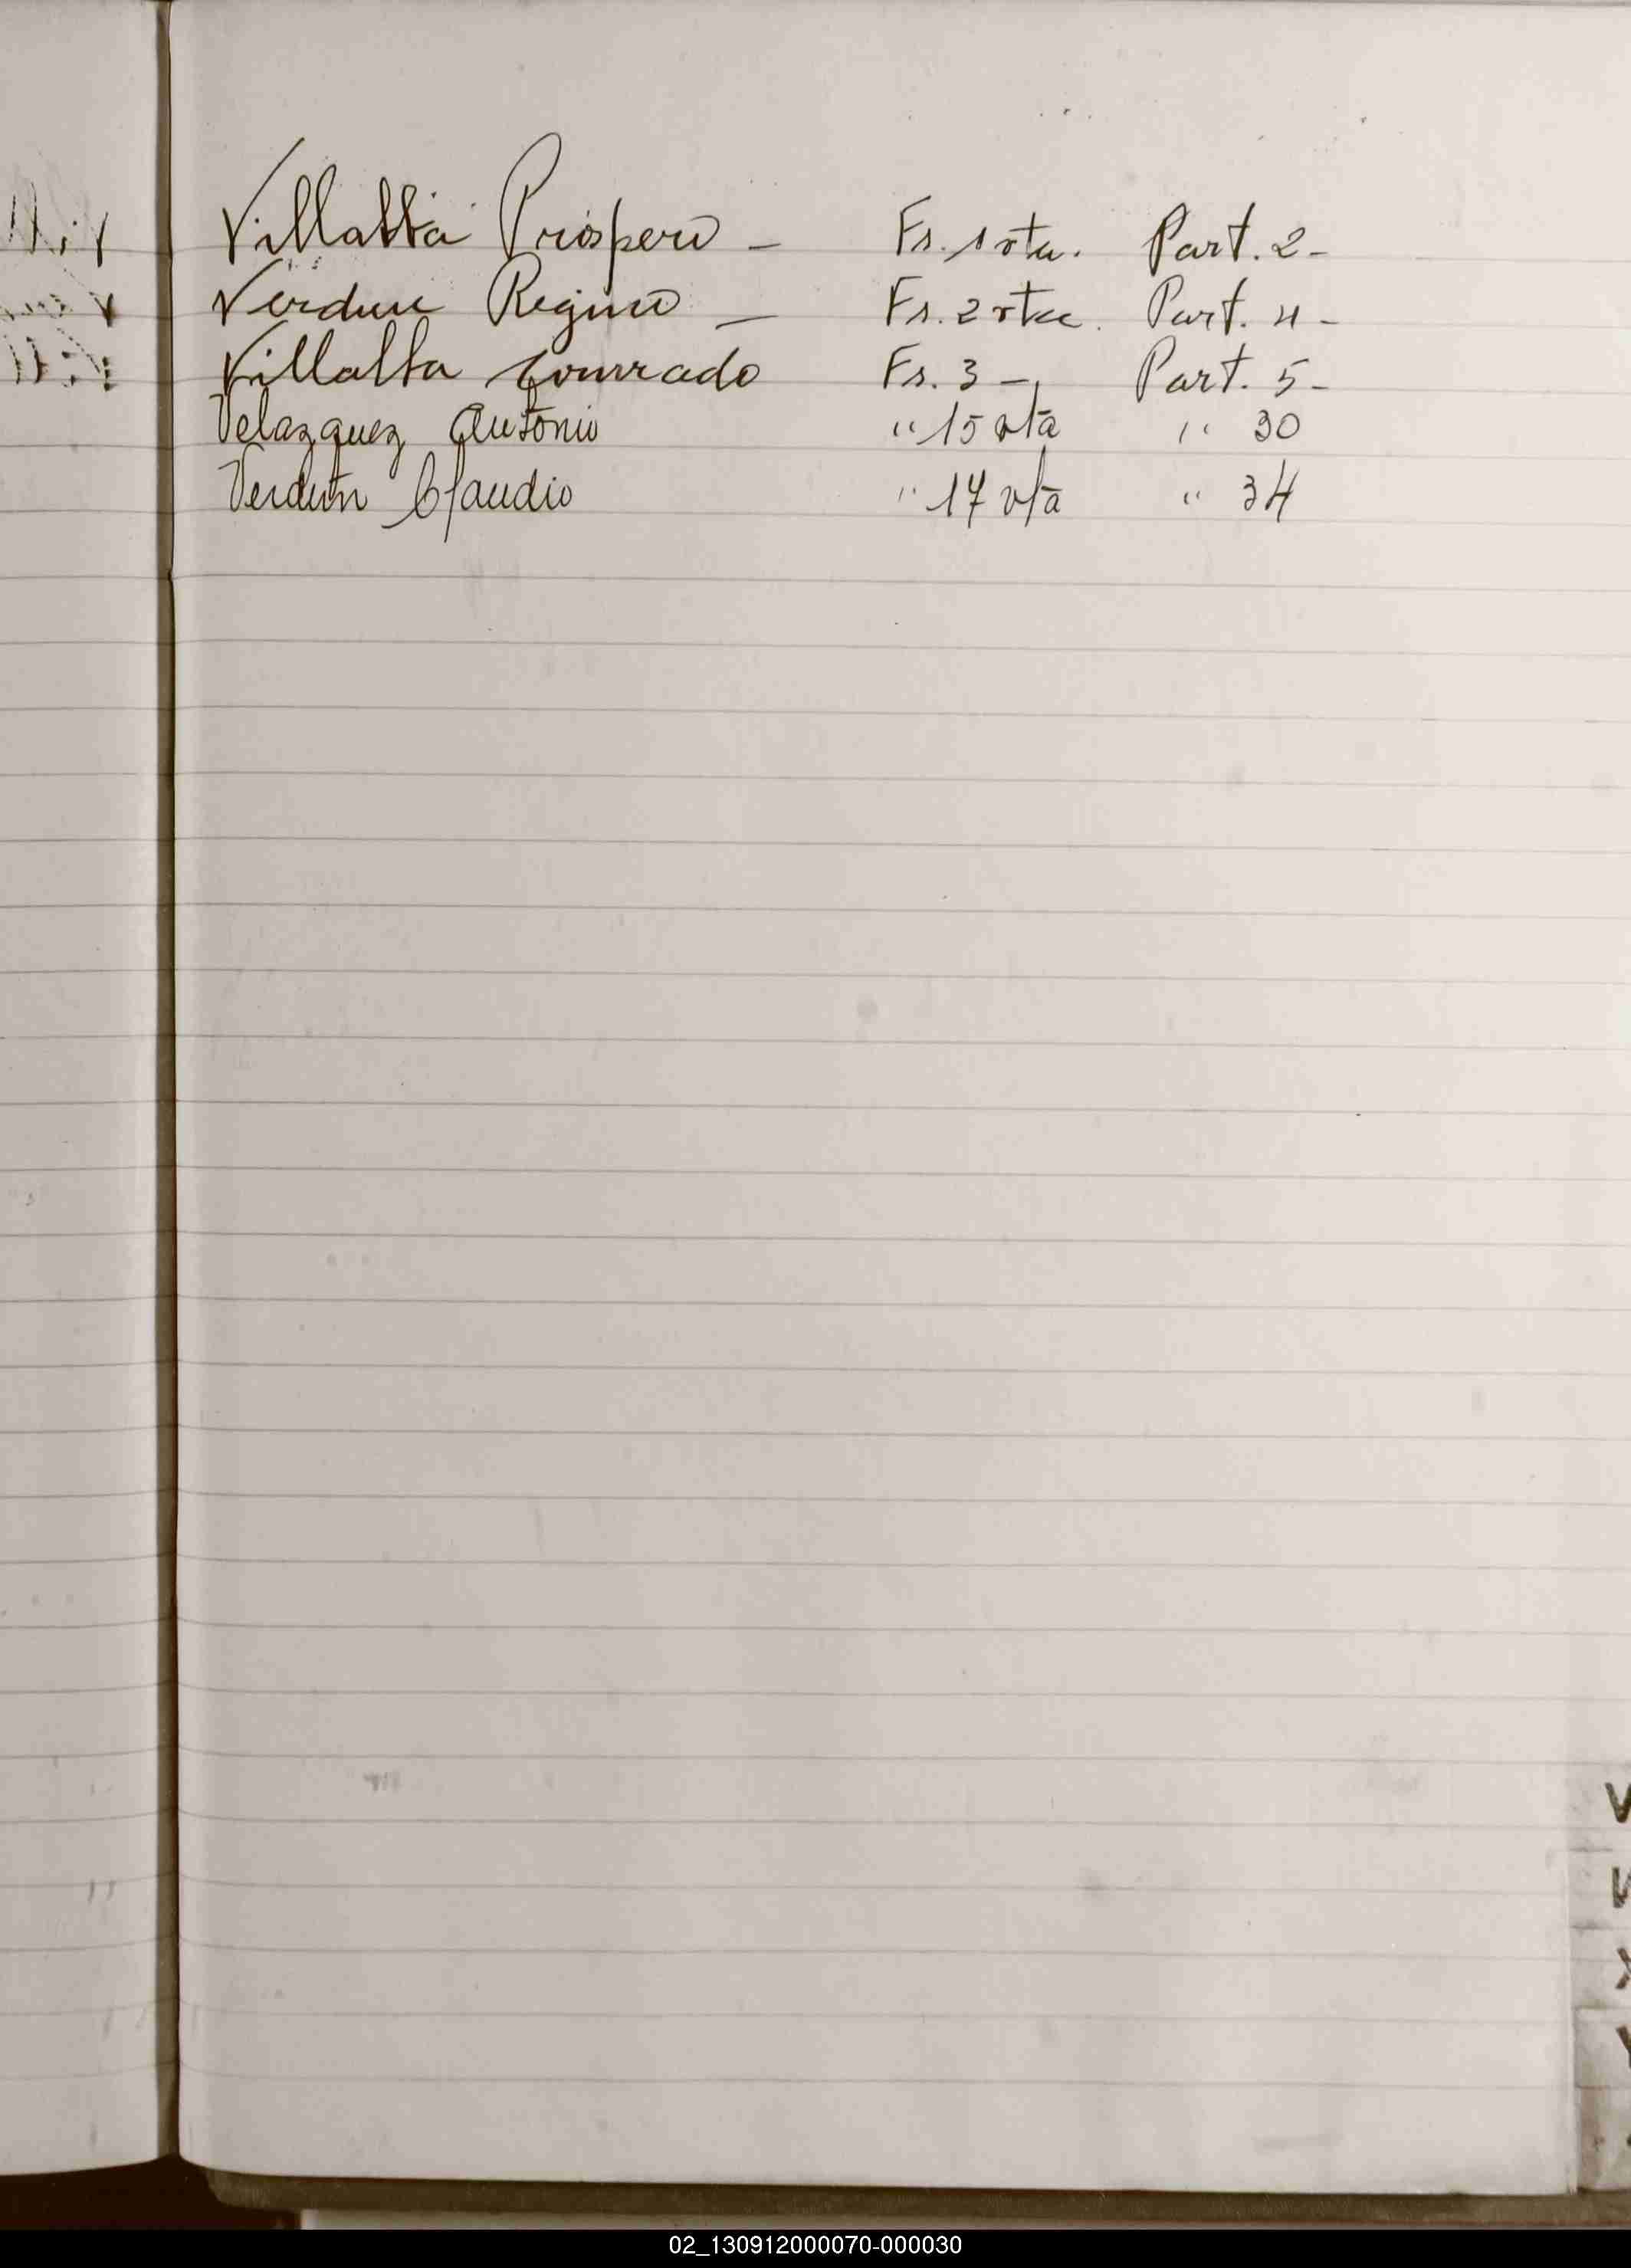 Villalba Prospero - Fs. 1 vta. Part. 2-
Verdun Regino - Fs. 2 vta. Part. 4-
Villalba Conrado Fs. 3 - Part. 5-
Velazquez Antonio " 15 vta " 30
Verdún Claudio " 17 vta " 34
V
X
Y
02_130912000070-000030